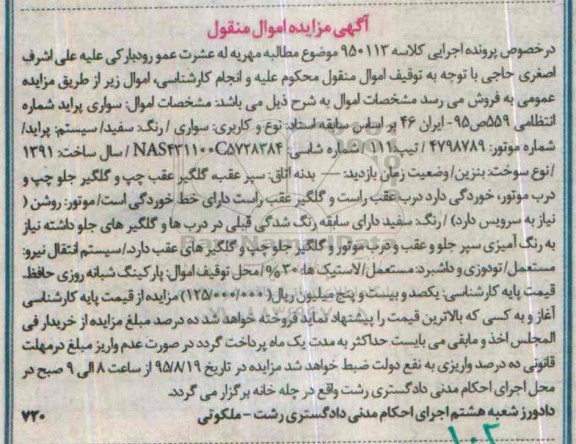 آگهی مزایده اموال منقول
درخصوص پرونده اجرایی کلاسه ۹۵۰۱۱۳ موضوع مطالبه مهریه له عشرت عمو رودبارکی علیه علی اشرف
اصغری حاجی با توجه به توقیف اموال منقول محکوم علیه و انجام کارشناسی، اموال زیر از طریق مزایده
عمومی به فروش می رسد مشخصات اموال به شرح ذیل می باشد: مشخصات اموال: سواری پراید شماره
انتظامی ۵۵۹ص۹۵- ایران ۴۶ بر اساس سابقه اسناد: نوع و کاربری: سواری / رنگ: سفید/ سیستم: پراید/
شماره موتور: ۴۷۹۸۷۸۹ / تیپ: ۱۱۱ / شماره شاسی: NAS۴۳۱۱۰۰C۵۷۲۸۳۸۴ / سال ساخت: ۱۳۹۱
/نوع سوخت: بنزین/وضعیت زمان بازدید: — بدنه اتاق: سپر عقب، گلگیر عقب چپ و گلگیر جلو چپ و
درب موتور، خوردگی دارد درب عقب راست و گلگیر عقب راست دارای خط خوردگی است/موتور: روشن (
نیاز به سرویس دارد) / رنگ: سفید دارای سابقه رنگ شدگی قبلی در درب ها و گلگیر های جلو داشته نیاز
به رنگ آمیزی سپر جلو و عقب و درب موتور و گلگیر جلو چپ و گلگیر های عقب دارد./سیستم انتقال نیرو:
مستعمل/تودوزی و داشبرد: مستعمل/لاستیک ها: ۳۰%/محل توقیف اموال: پارکینگ شبانه روزی حافظ.
قیمت پایه کارشناسی: یکصد و بیست و پنج میلیون ریال(۱۲۵/۰۰۰/۰۰۰) مزایده از قیمت پایه کارشناسی
آغاز و به کسی که بالاترین قیمت را پیشنهاد نماید فروخته خواهد شد ده درصد مبلغ مزایده از خریدار فی
المجلس اخذ و مابقی می بایست حداکثر به مدت یک ماه پرداخت گردد در صورت عدم واریز مبلغ درمهلت
قانونی ده درصد واریزی به نفع دولت ضبط خواهد شد مزایده در تاریخ ۹۵/۸/۱۹ از ساعت ۸ الی ۹ صبح در
محل اجرای احکام مدنی دادگستری رشت واقع در چله خانه برگزار می گردد.
دادورز شعبه هشتم اجرای احکام مدنی دادگستری رشت – ملکوتی
۷۳۰
۱۰۲